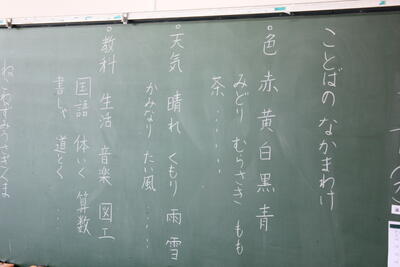 ことばの なかまわけ
°色 赤 黄 白 黒 青
みどり むらさき もも
茶・・・・・
°天気 晴れ くもり 雨 雪
かみなり たい風・・・・
°教科 生活 音楽 図工
国語 体いく 算数
書しゃ 道とく・・・